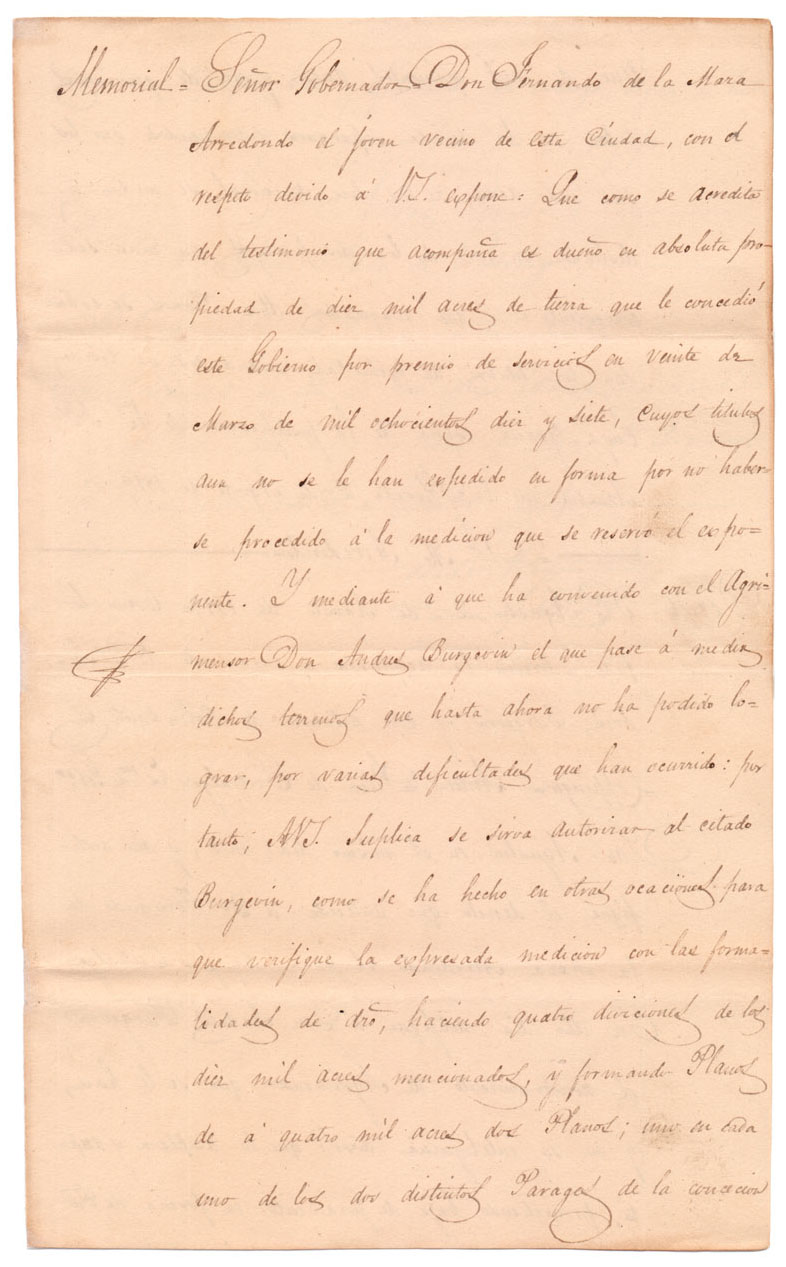 Memorial = Señor Gobernador = Don Fernando de la Maza
Arredondo el joven vecino de esta Ciudad, con el
respeto devido á V.S. expone: Que como se acredita
del testimonio que acompaña es dueño en absoluta pro-
piedad de diez mil acres de tierra que le concedió
este Gobierno por premio de servicios en veinte de
Marzo de mil ochocientos diez y siete, cuyos titulos
aun no se le han expedido en forma por no haber-
se procedido á la medicion que se reservó el expo-
nente. Y mediante á que ha convenido con el Agri-
mensor Don Andres Burgevin el que pase á medir
dichos terrenos que hasta ahora no ha podido lo-
grar, por varias dificultades que han ocurrido: por
tanto; A V.S. Suplica se sirva autorizar al citado
Burgevin, como se ha hecho en otras ocaciones para
que verifique la expresada medicion con las forma-
lidades de dro, haciendo quatro diviciones de los
diez mil acres mencionados, y formando Planos
de á quatro mil acres dos Planos; uno en cada
uno de los dos distintos Parages de la concecion